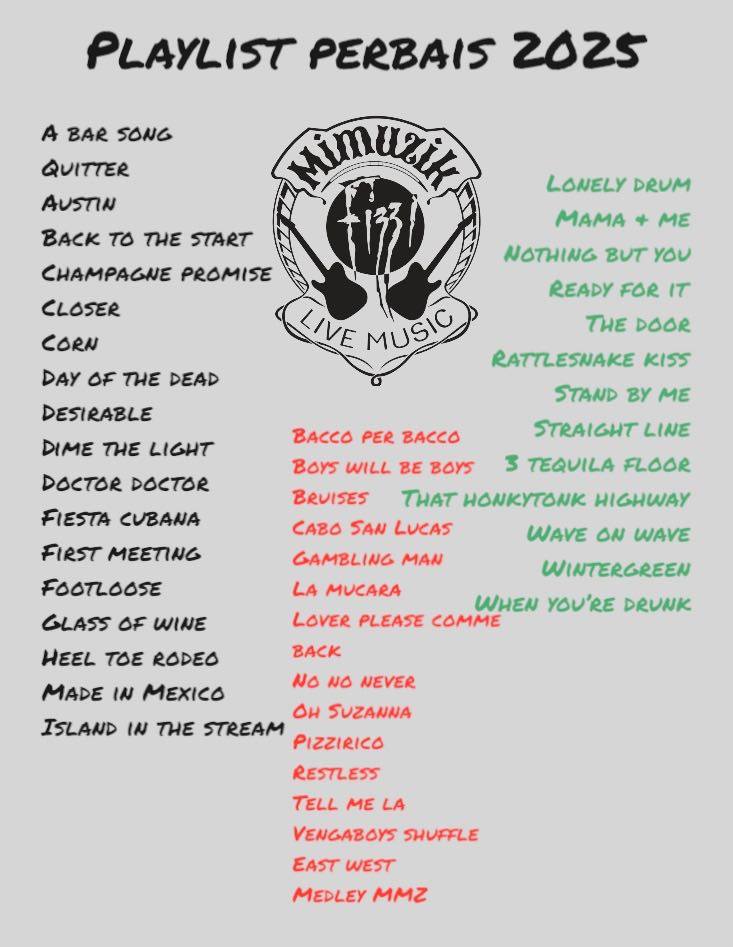 Playlist perbais 2025
A bar song
Quitter
Austin
Back to the start
Champagne promise
Closer
Corn
Day of the dead
Desirable
Dime the light
Doctor doctor
Fiesta cubana
First meeting
Footloose
Glass of wine
Heel toe rodeo
Made in Mexico
Island in the stream
Mimuzik
Fizzi
LIVE MUSIC
Bacco per bacco
Boys will be boys
Bruises
Cabo San Lucas
Gambling man
La mucara
Lover please comme
back
No no never
Oh Suzanna
Pizzirico
Restless
Tell me la
Vengaboys shuffle
East west
Medley MMZ
Lonely drum
Mama + me
Nothing but you
Ready for it
The door
Rattlesnake kiss
Stand by me
Straight line
3 tequila floor
That honkytonk highway
Wave on wave
Wintergreen
When you're drunk